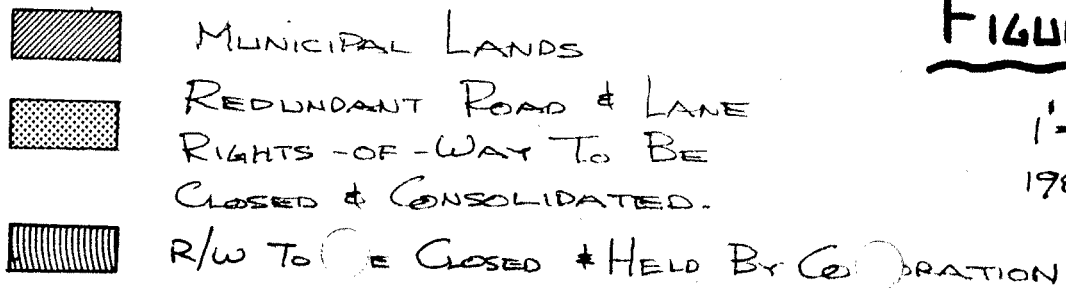 MUNICIPAL LANDS
REDUNDANT ROAD & LANE
RIGHTS-OF-WAY TO BE
CLOSED & CONSOLIDATED.
R/W TO E CLOSED & HELD BY CO RATION
FIGU
1"=
198